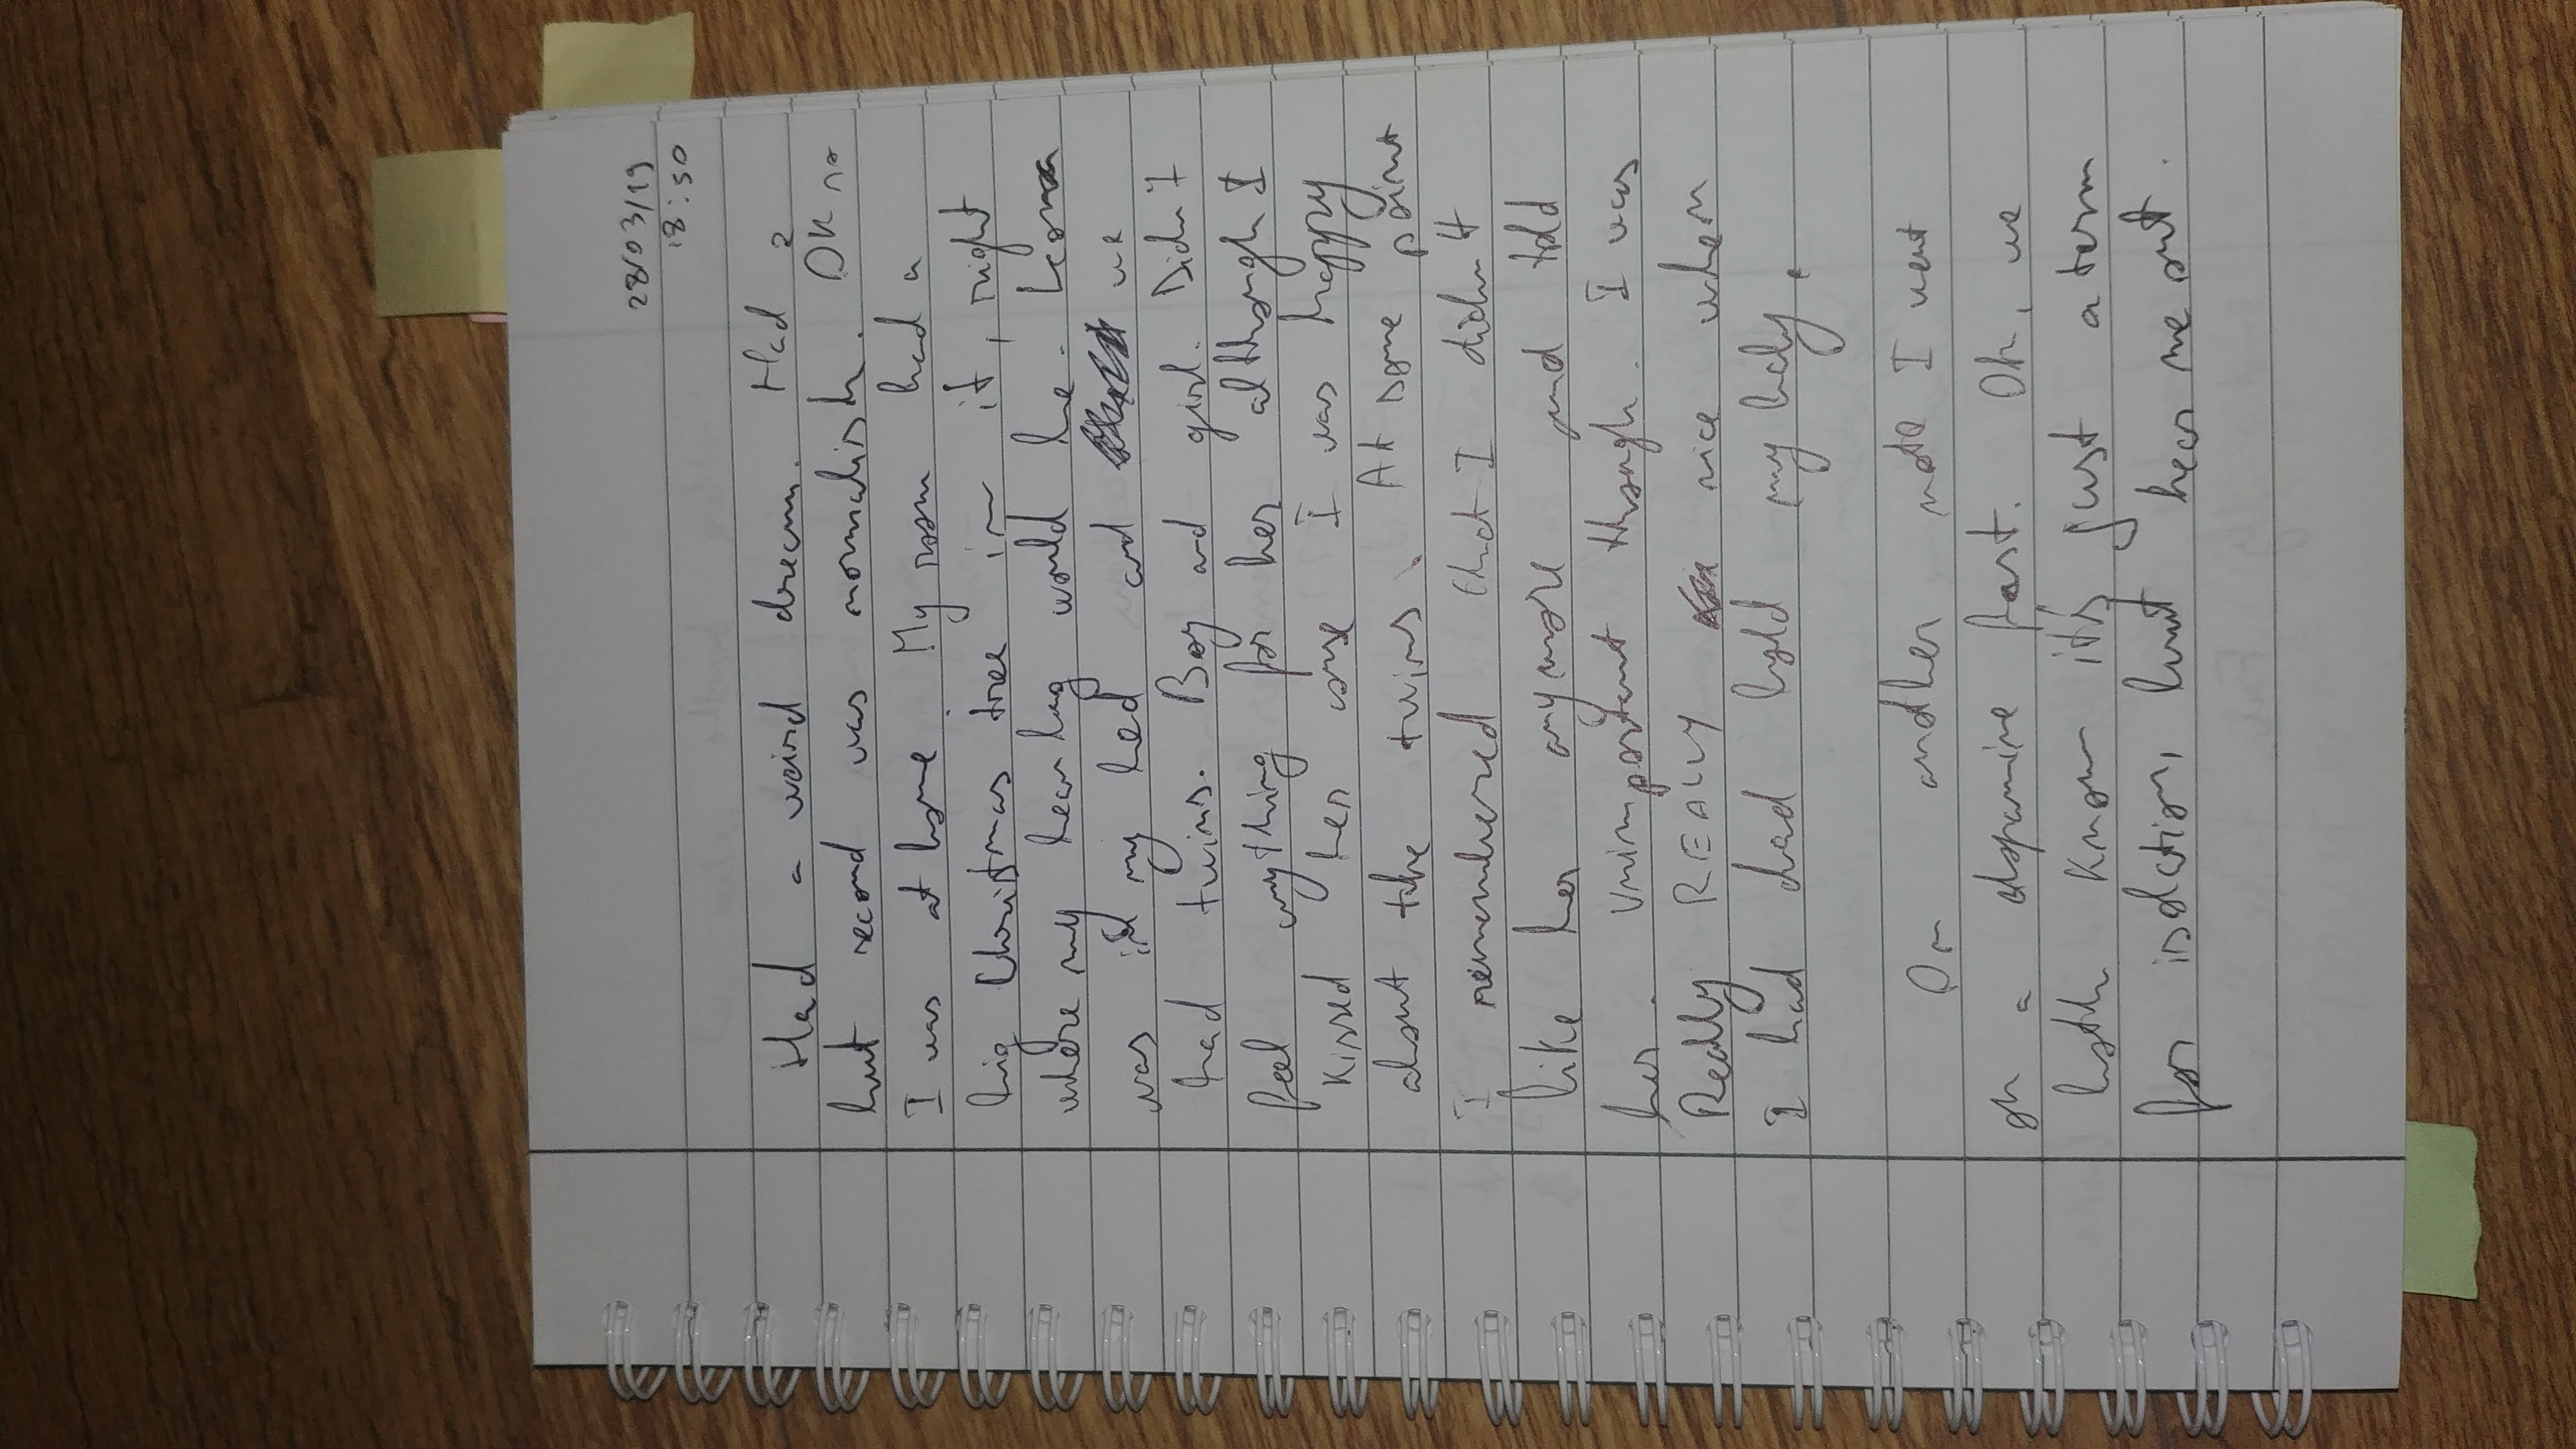 28/03/19
18:50
Had a weird dream. Had 2
but second was normalish. OK so
I was at home. My room had a
big Christmas tree in it, right
where my bean bag would be.
was in my bed and we
had twins. Boy and girl. Didn't
feel anything for her although I
kissed her cause I was happy
about the twins. At some point
I remembered that I didn't
like her anymore and told
her. Unimportant though. I was
Really REALLY nice when
I had dad hold my baby.
On another note I went
on a dopamine fast. Ok, we
both know it's just a term
for isolation, but hear me out.